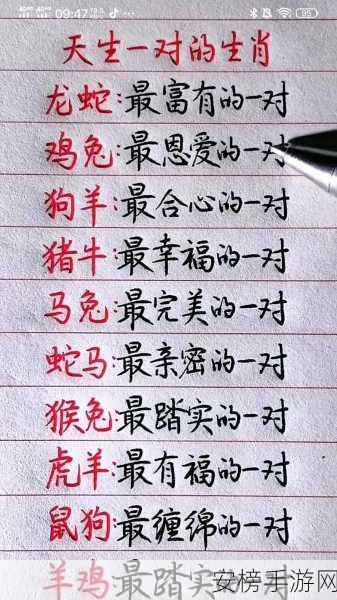 09:47
95
天生一对的生肖
龙蛇:最富有的一对
鸡兔:最恩爱的一对
狗羊:最合心的一对
猪牛:最幸福的一对
马兔:最完美的一对
蛇马:最亲密的一对
猴兔:最踏实的一对
虎羊:最有福的一对
鼠狗:最缠绵的一对
羊鸡最踏实的一对
安榜手游网